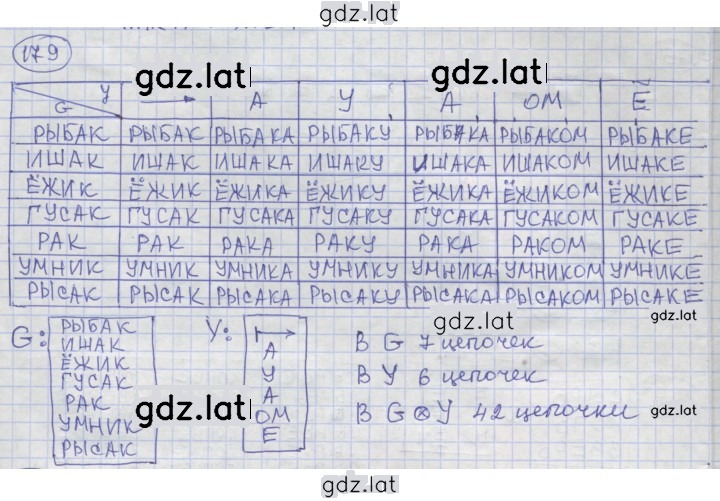 gdz.lat
179
gdz.lat gdz.lat gdz.lat
У А У А ОМ Е
G
РЫБАК РЫБАК РЫБАКА РЫБАКУ РЫБАКА РЫБАКОМ РЫБАКЕ
ИШАК ИШАК ИШАКА ИШАКУ ИШАКА ИШАКОМ ИШАКЕ
ЁЖИК ЁЖИК ЁЖИКА ЁЖИКУ ЁЖИКА ЁЖИКОМ ЁЖИКЕ
ГУСАК ГУСАК ГУСАКА ГУСАКУ ГУСАКА ГУСАКОМ ГУСАКЕ
РАК РАК РАКА РАКУ РАКА РАКОМ РАКЕ
УМНИК УМНИК УМНИКА УМНИКУ УМНИКА УМНИКОМ УМНИКЕ
РЫСАК РЫСАК РЫСАКА РЫСАКУ РЫСАКА РЫСАКОМ РЫСАКЕ
gdz.lat
G:
РЫБАК
ИШАК
ЁЖИК
ГУСАК
РАК
УМНИК
РЫСАК
У:
А
У
А
ОМ
Е
В G 7 цепочек
В У 6 цепочек
В G ⊗ У 42 цепочки
gdz.lat gdz.lat gdz.lat gdz.lat
gdz.lat